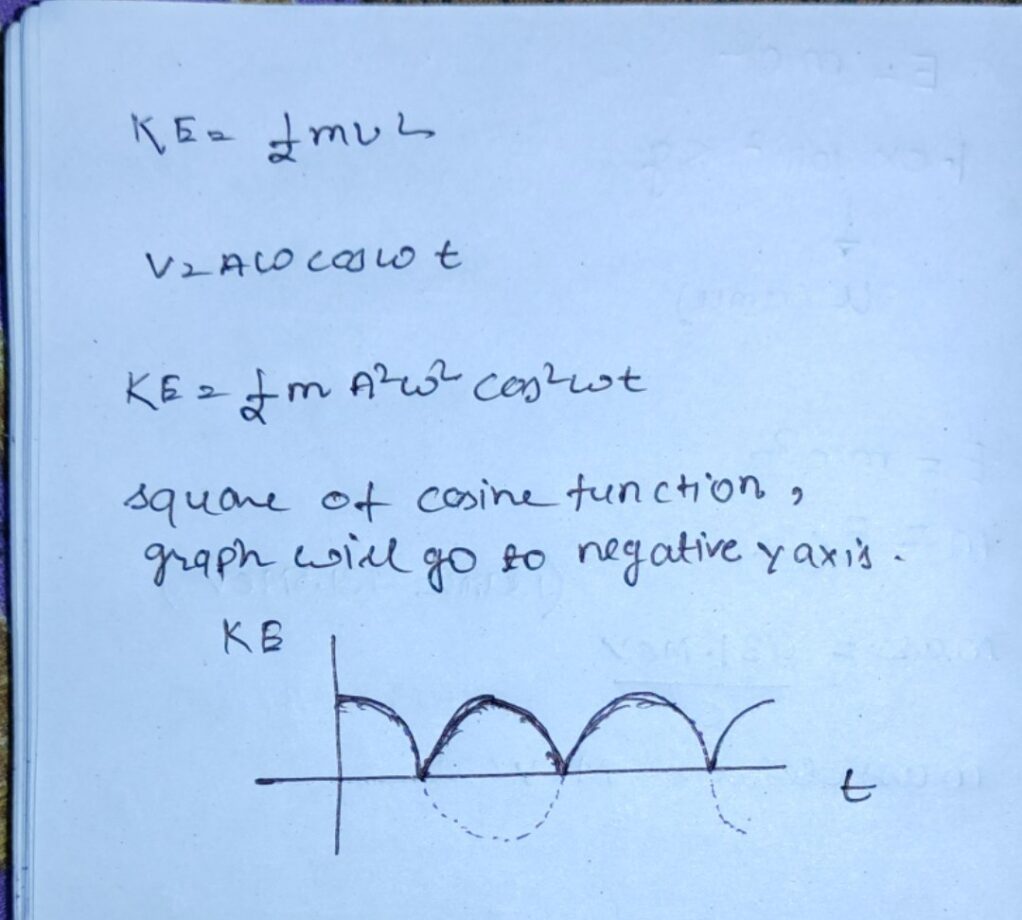 KE = 1/2 mv2
V = Aω cosωt
KE = 1/2 m A²ω² cos²ωt
square of cosine function,
graph will go to negative y axis.
KE
t